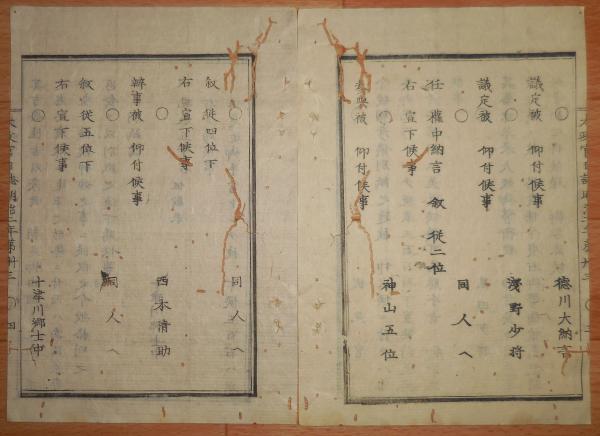 ○ 徳川大納言
議定被 仰付候事
○ 淺野少将
議定被 仰付候事
○ 同人へ
任 權中納言 叙 從二位
右 宣下候事
○ 神山五位
参與被 仰付候事
○ 同人へ
叙 從四位下
右 宣下候事
○ 西本清助
辨事被 仰付候事
○ 同人へ
叙從五位下
右 宣下候事
○ 十津川郷士中
太政官日誌明治二年第卅二 ○ 四